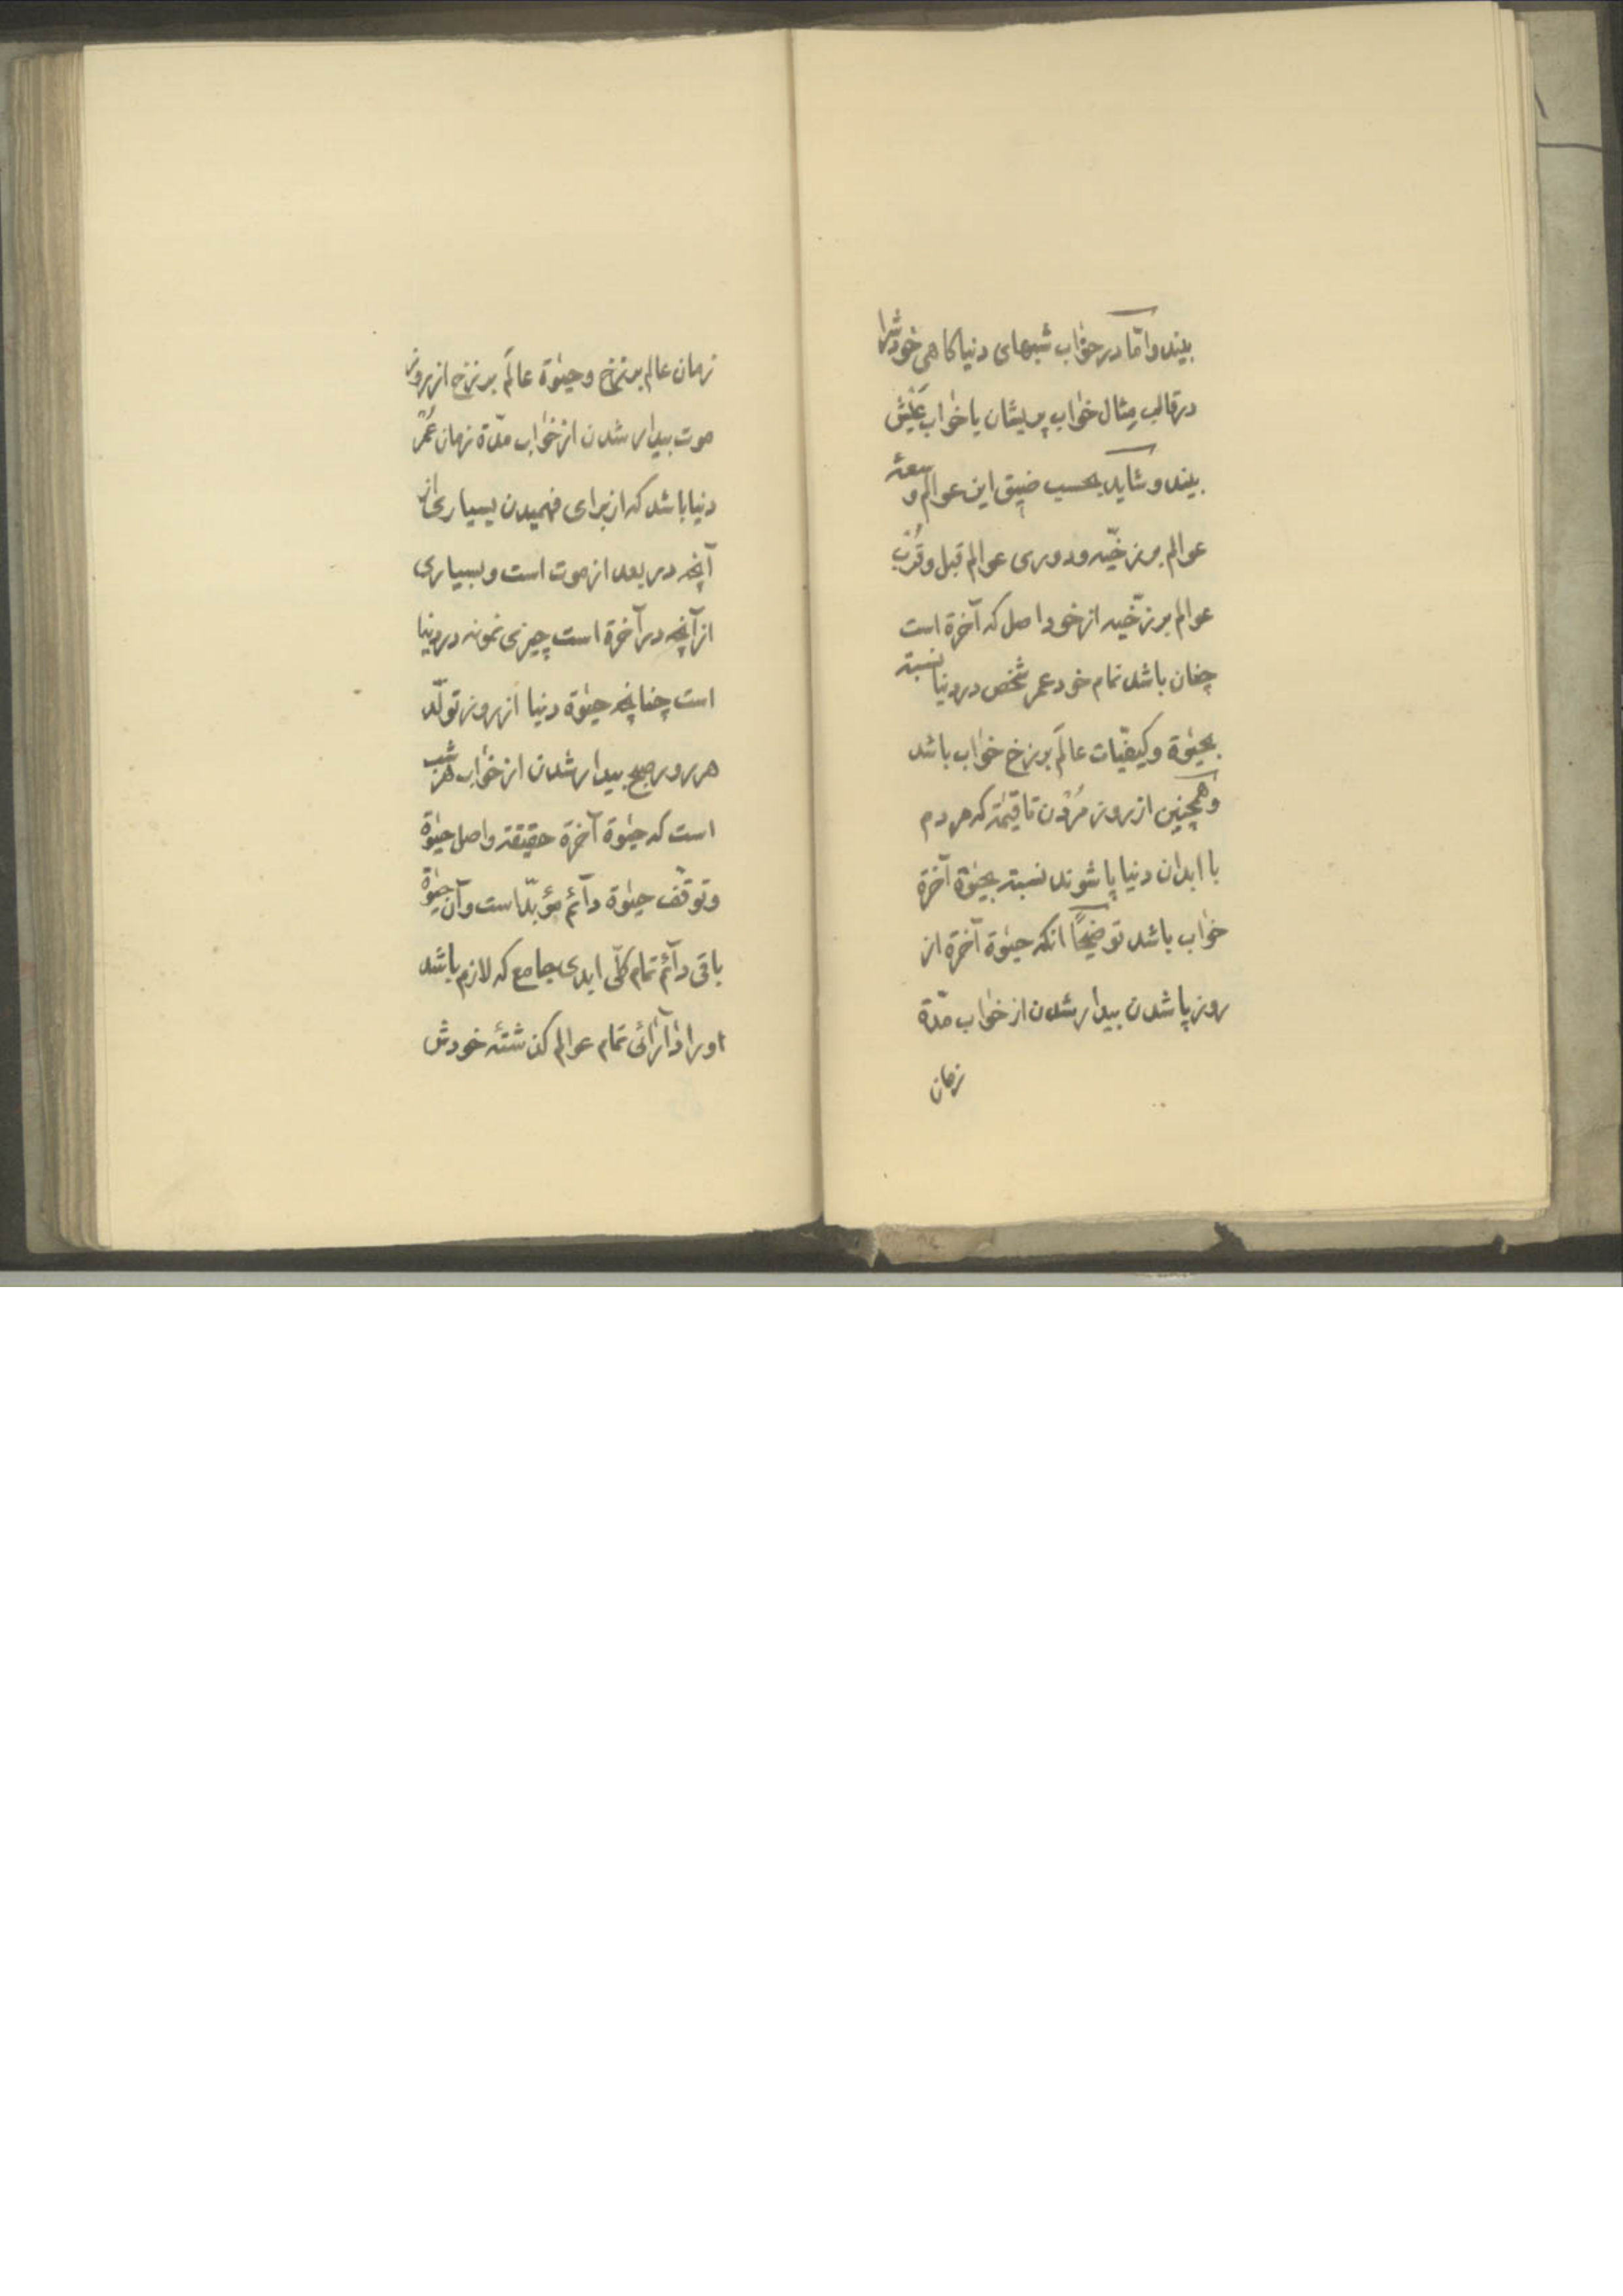 بیند و امّا در خواب شبهای دنیا کاهی خودشرا
در قالب مثال خواب پریشان یا خواب عَیش
بیند و شاید بحسب ضیق این عوالم و سعة
عوالم برزخیّه و دوری عوالم قبل و قُرب
عوالم برزخّیه از خود اصل که آخرة است
چنان باشد تمام خود عمر شخص در دنیا نسبته
بحیٰوة و کیفیّات عالَم برزخ خواب باشد
و همچنین از روز مُردن تا قیٰمة که مردم
با ابدان دنیا پا شوند نسبته بحیٰوة آخرة
خواب باشد توضیحًا انکه حیٰوة آخرة از
روز پا شدن بیدار شدن از خواب مدّة
زمان
زمان عالم برزخ و حیٰوة عالَم برزخ از روز
موت بیدار شدن از خواب مدّة زمان عُمْر
دنیا باشد که از برای فهمیدن بسیاری از
آنچه در بعد از موت است و بسیاری
از آنچه در آخرة است چیزی نمونه در دنیا
است چنانچه حیٰوة دنیا از روز تولّد
هر روز صبح بیدار شدن از خواب هر شب
است که حیٰوة آخرة حقیقة و اصل حیٰوة
و توقّف حیٰوة دآئم مؤبّد است و آن حیٰوة
باقی دآئم تمام کلّی ابدی جامع که لازم باشد
او را دٰآرٰائی تمام عوالم کذشتهٔ خودش